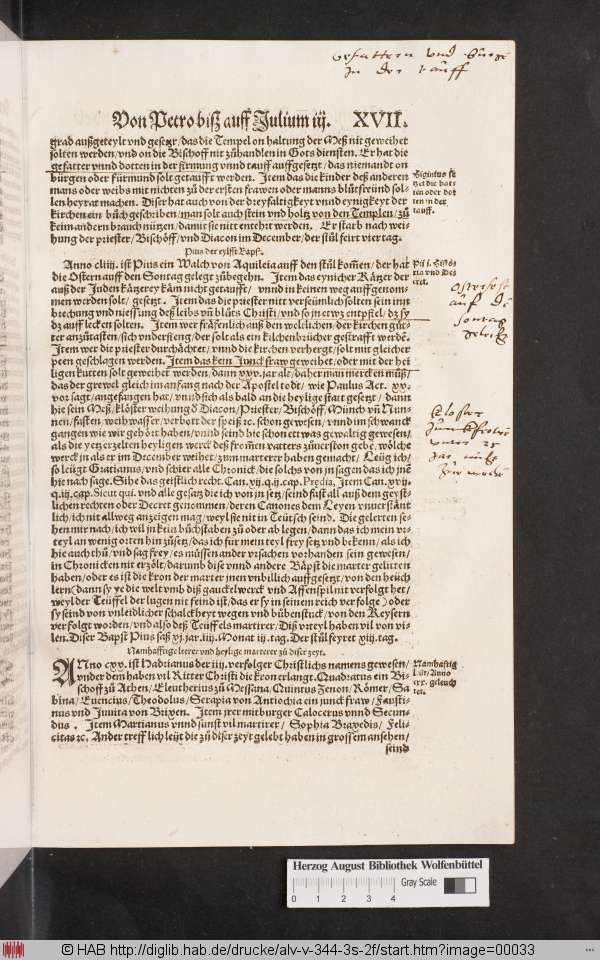 Gefattern vnd bürgē
In der tauff
Von Petro biß auff Julium iij. XVII.
grad außgeteylt vnd gesetzt/das die Tempel on haltung der Meß nit geweihet
solten werden/vnd on die Bischoff nit zůhandlen in Gots diensten. Er hat die
gefatter vnnd dotten in der firmung vnnd tauff auffgesetzt/das niemandt on
bürgen oder fürmund solt getaufft werden. Item das die kinder deß anderen
mans oder weibs mit nichten zů der ersten frawen oder manns blůtsfreünd sol-
len heyrat machen. Diser hat auch von der dreyfaltigkeyt vnnd eynigkeyt der
kirchen ein bůch geschriben/man solt auch stein vnd holtz von den Templen/zů
keim andern brauch nützen/damit sie nit entehet werden. Er starb nach wei-
hung der priester/Bischöff/vnd Diacon im December/der stůl feirt vier tag.
Higinius se
tzet die ha
ten oder dot
ten in der
tauff.
Pius der eylfft Bapst.
Anno cliiij. ist Pius ein Walch von Aquileia auff den stůl kom̄en/der hat
die Ostern auff den Sontag gelegt zůbegehn. Item das eynicher Kätzer der
auß der Juden kätzerey käm nicht getaufft/vnnd in keinen weg auffgenom-
men werden solt/gesetzt. Item das die priester nit verseümlich solten sein im̄
brechung vnd niessung deß leibs vn̄ blůts Christi/vnd so in etwz entpfiel/dz sy
dz auff lecken solten. Item wer fräfenlich auß den weltlichen/der kirchen gůt-
ter anzůtasten/sich vndersteng/der solt als ein kilchenbrücher gestrafft werdē.
Item wer die priester durchächtet/vnnd die kirchen verhergt/solt mit gleicher
peen geschlagen werden. Item das kein Junckfraw geweihet/oder mit der hei
ligen kutten solt geweihet werden/dann xxv. jar alt/daher man mercken můß/
das der grewel gleich im anfang nach der Apostel todt/wie Paulus Act. xx.
vor sagt/angefangen hat/vnnd sich als bald an die heylige statt gesetzt/dann
hie sein Meß/klöster weihung/Diacon/Priester/Bischöff/Münch vn̄ Nun-
nen/fasten/weihwasser/verbott der speiß ꝛc. schon gewesen/vnnd im schwanck
gangen wie wir gehört haben/vnnd seind hie schon ettwas gewaltig gewesen/
als die yetz erzelten heyligen werck deß from̄en vatters zůuerston gebē/wölche
werck in als er im December weihet/zum marterer haben gemacht/Leüg ich/
so leügt Gratianus/vnd schier alle Chronick/die solchs von jn sagen das ich jnē
hie nach sage. Sihe das geistlich recht. Can. xij. q. ij. cap. Predia, Item Can. xvij.
q. iij. cap. Sicut qui. vnd alle gesatz die ich von jn setz/seind fast all auß dem geyst-
lichen rechten oder Decret genommen/deren Canones dem Leyen vnuerstänt
lich/ich nit allweg anzeigen mag/weyl sie nit in Teütsch seind. Die gelerten se-
hen mir nach/ich wil jn kein bůchstaben zů oder ab legen/dann das ich mein vr-
teyl an wenig orten hin zůsetz/das ich für mein teyl frey setz vnd bekenn/als ich
hie auch thů/vnd sag frey/es müssen ander vrsachen vorhanden sein gewesen/
in Chronicken nit erzölt/darumb dise vnnd andere Bäpst die marter gelitten
haben/oder es ist die kron der marter jnen vnbillich auffgesetzt/von den heüch
lern (dann sy ye die welt vmb diß gauckelwerck vnd Affenspil nit verfolgt het/
weyl der Teüffel der lugen nit feind ist/das er sy in seinem reich verfolge) oder
sy seind von vnleidlicher schalckheyt wegen vnd bübenstück/von den Keysern
verfolgt worden/vnd also deß Teüffels martirer/Diß vrteyl haben vil von vi-
len. Diser Bapst Pius saß xj. jar. iiij. Monat iij. tag. Der stůl feyret xiij. tag.
Osterfest
auf dē
sontag
gelegt
Namhafftige lerer vnd heylige marterer zů diser zeyt.
ANno cxx. ist Hadrianus der iiij. verfolger Christlichs namens gewesen/
vnder dem haben vil Ritter Christi die kron erlangt. Quadratus ein Bi-
schoff zů Athen/Eleutherius zů Messana, Quintus Zenon/Römer/Sa-
bina/Euencius/Theodolus/Serapia von Antiochia ein junckfraw/Fausti-
nus vnd Jouita von Brixen. Item jrer mitburger Calocerus vnnd Secun-
dus. Item Martianus vnnd sunst vil martirer/Sophia Braxedis/Feli-
citas ꝛc. Ander trefflich leüt die zů diser zeyt gelebt haben in grossem ansehen/
seind
Namhafftig
leüt/Anno
cxx. geleuch
tet.
Herzog August Bibliothek Wolfenbüttel
0 1 2 3 4 Gray Scale
© HAB http://diglib.hab.de/drucke/alv-v-344-3s-2f/start.htm?image=00033